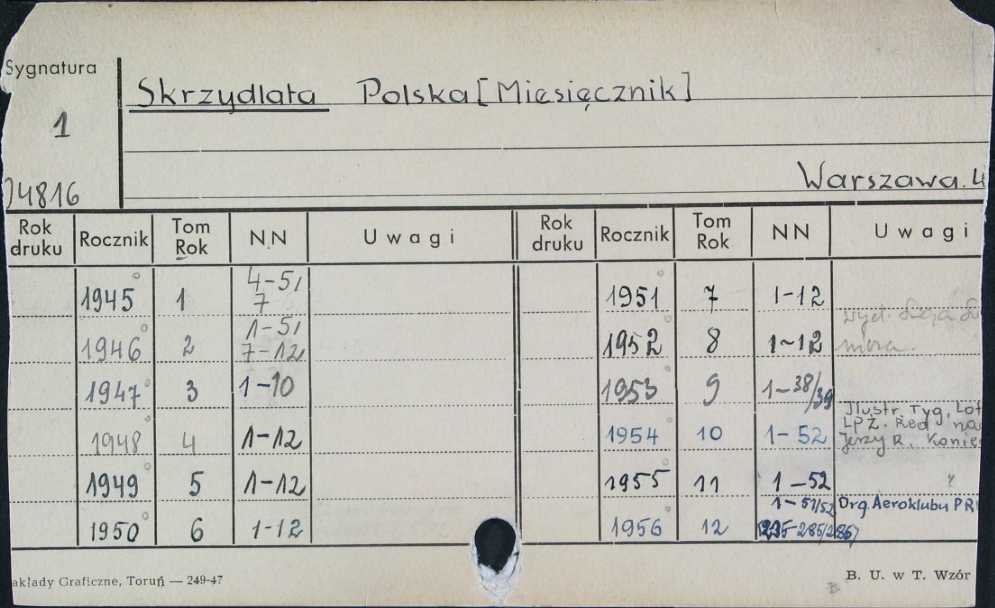 Sygnatura
Skrzydlata Polska [Miesięcznik]
1
Warszawa. 4
J4816
Rok druku Rocznik Tom Rok NN Uwagi Rok druku Rocznik Tom Rok NN Uwagi
1945 1 4-5, 7 1951 7 1-12
1946 2 1-5, 7-12 1952 8 1-12 wyd.
1947 3 1-10 1953 9 1-38/39
1948 4 1-12 1954 10 1-52 Ilustr. Tyg. Lot
LPŻ. Red. na
Jerzy R. Konie
1949 5 1-12 1955 11 1-52 "
1950 6 1-12 1956 12 1-51/52 Org. Aeroklubu PR
akłady Graficzne, Toruń — 249-47
B. U. w T. Wzór